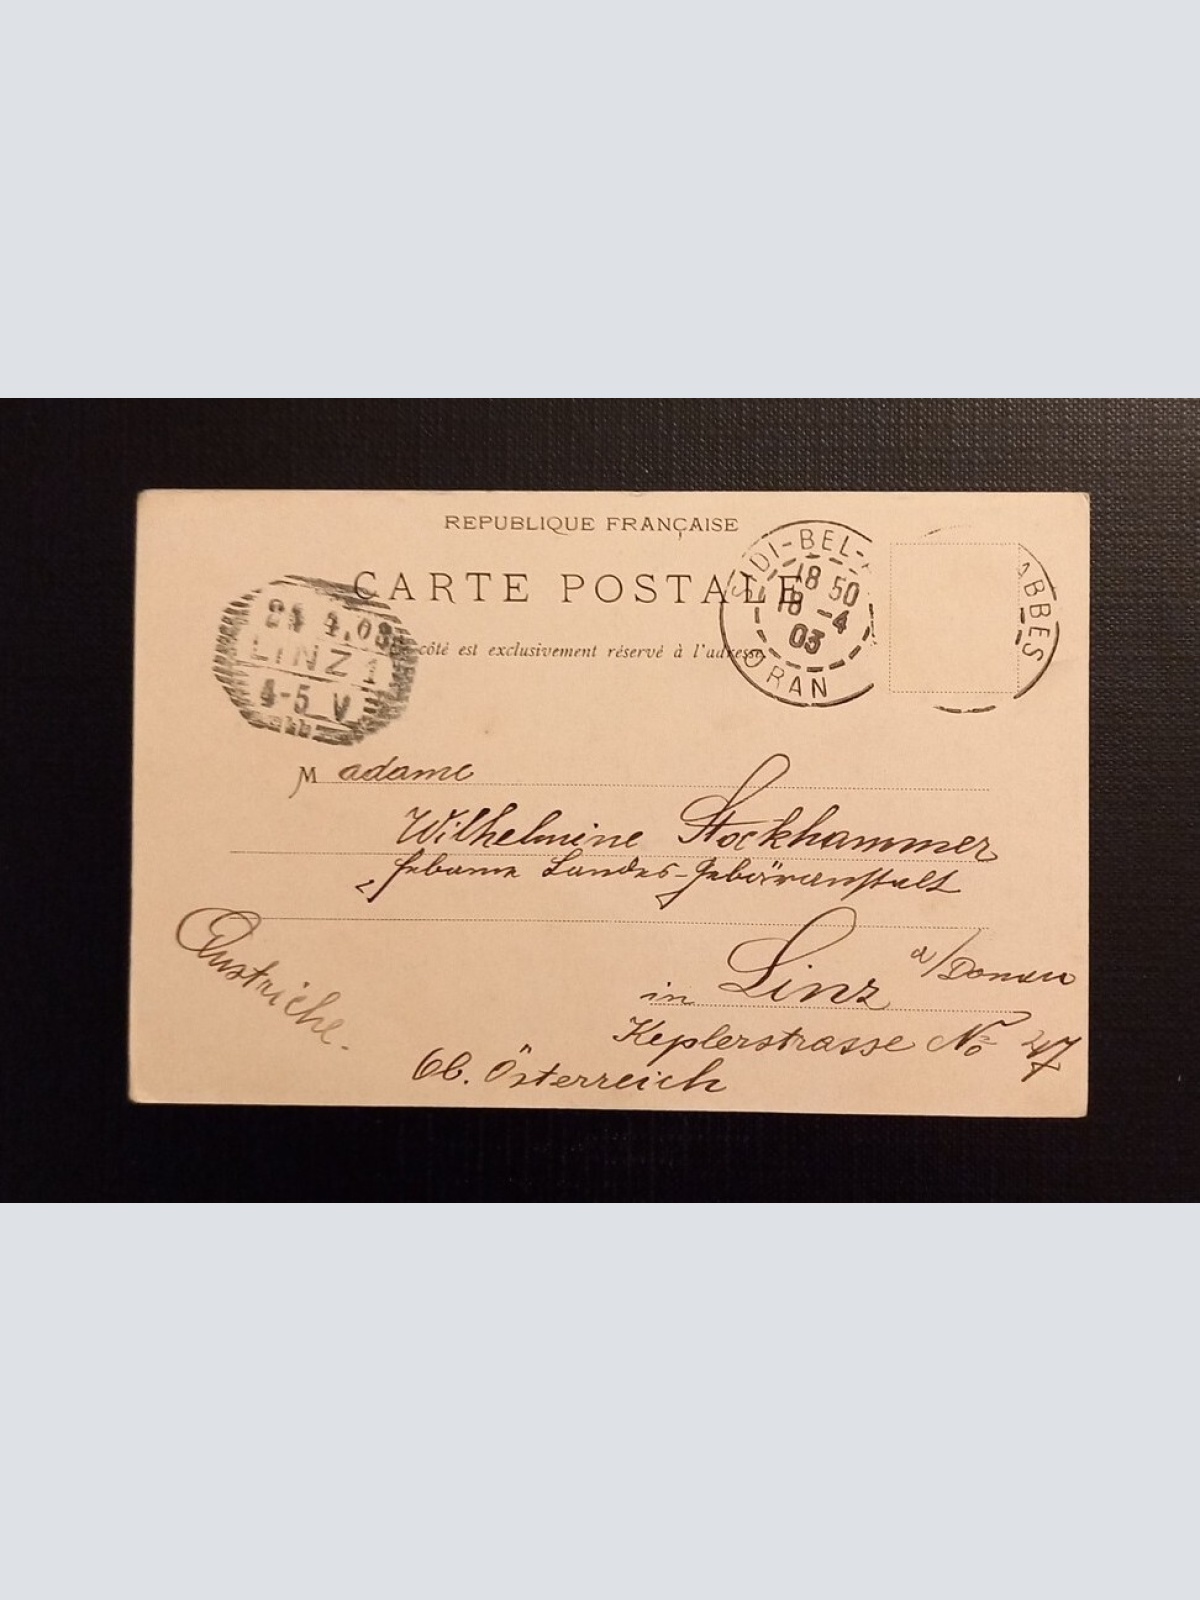 REPUBLIQUE FRANÇAISE
CARTE POSTALE
côté est exclusivement réservé à l'adresse
SIDI-BEL-
18 50
18 -4
03
ORAN
ABBÈS
LINZ
4-5 V
Madame
Wilhelmine Stockhammer
Hebame Landes-Gebäranstalt
in Linz a/Donau
Keplerstrasse No 47
Ob. Österreich
Austriche.